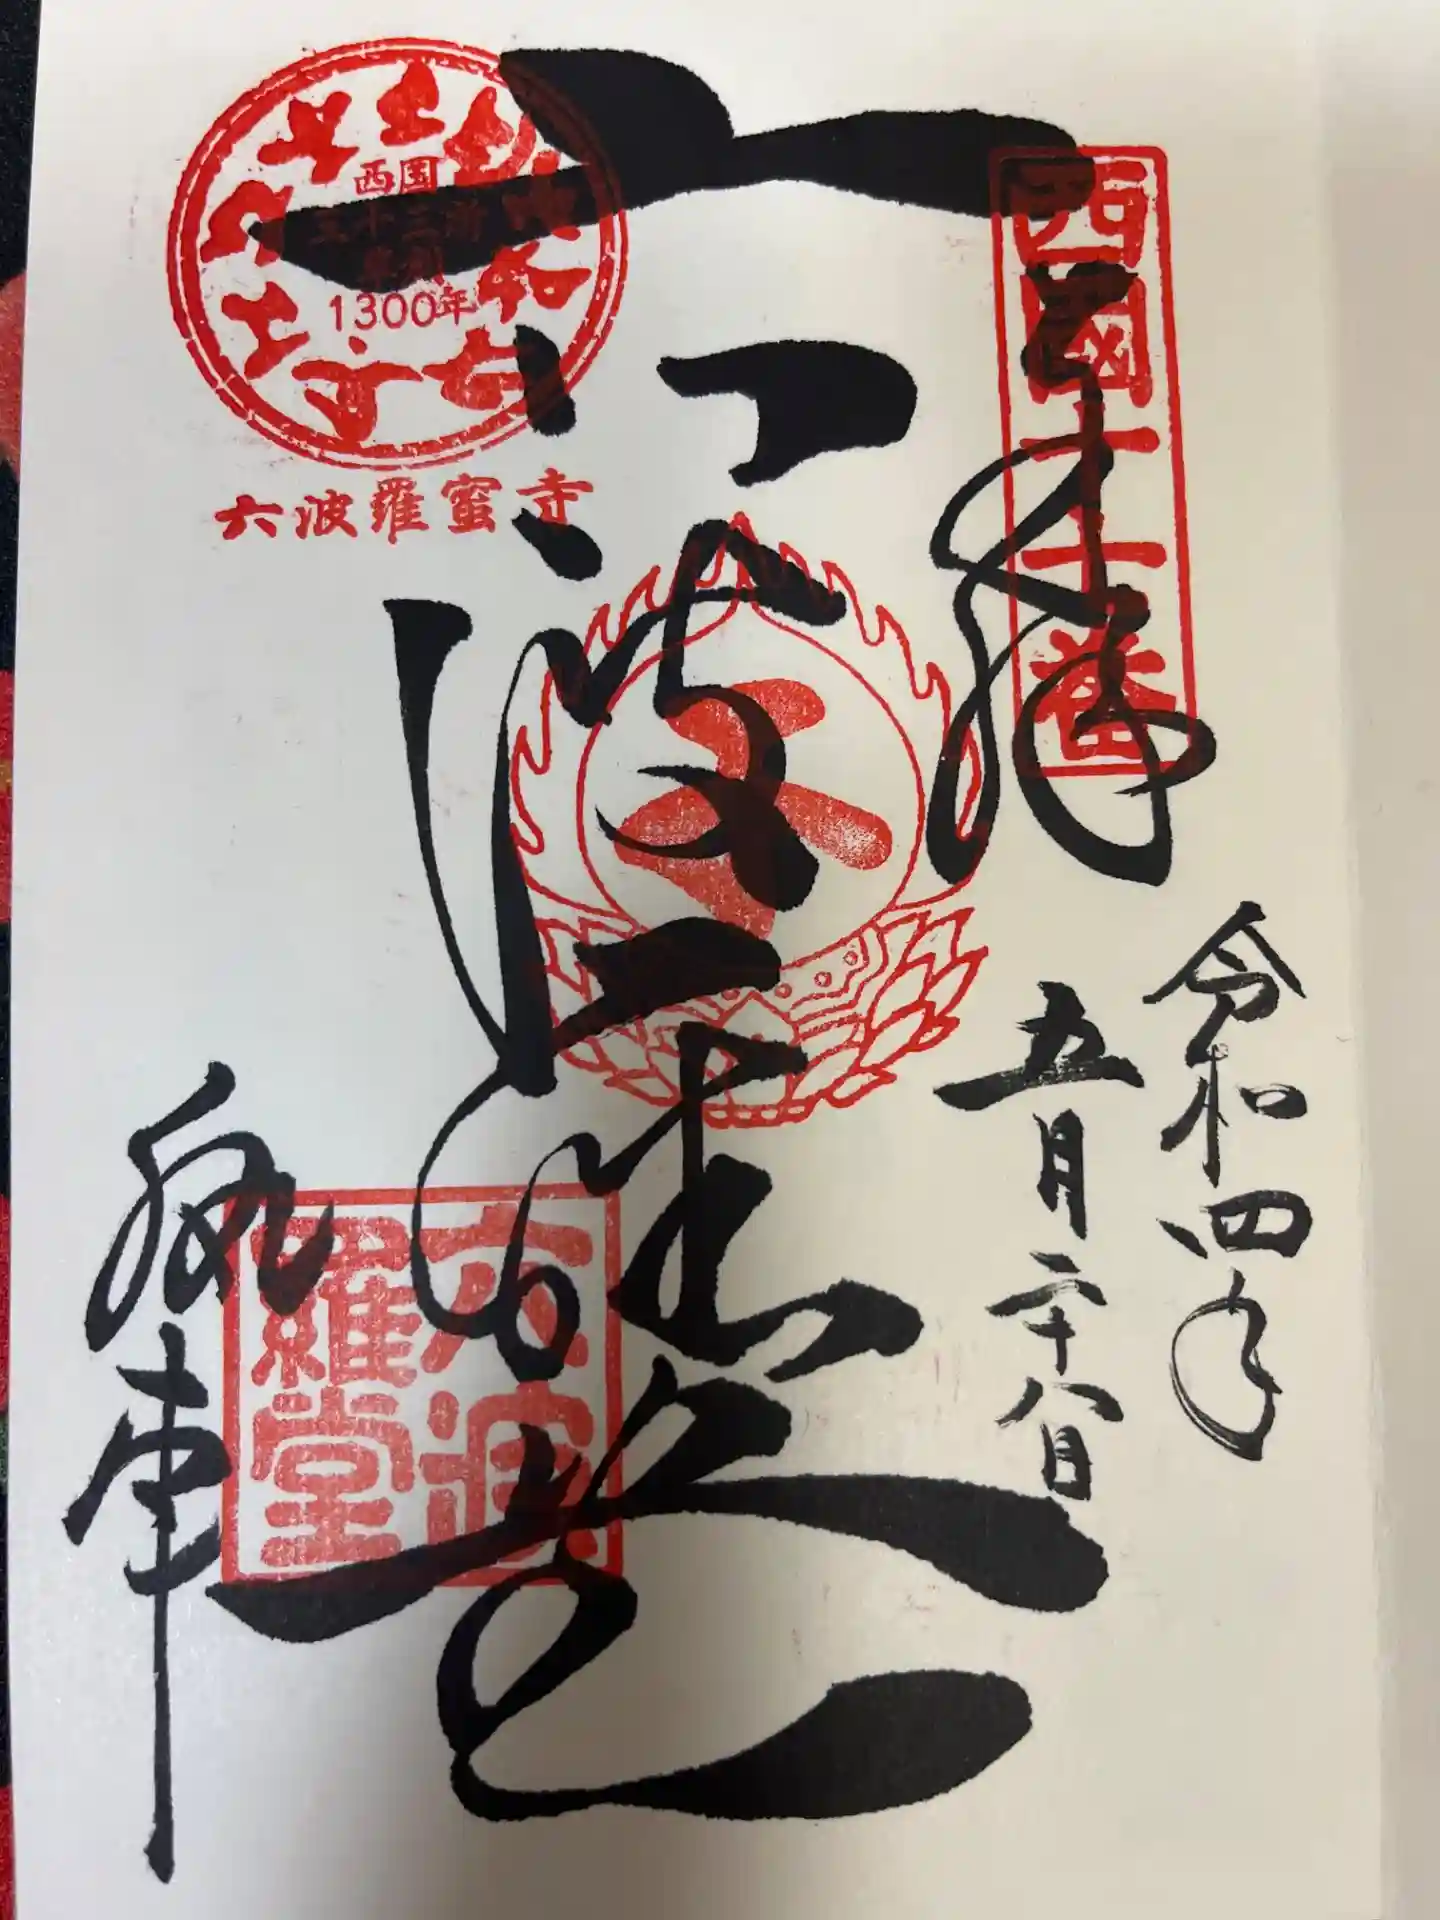 西國十七番
奉拝
令和四年
五月二十八日
六波羅堂
西国
三十三所
草創
1300年
六波羅蜜寺
六波
羅堂